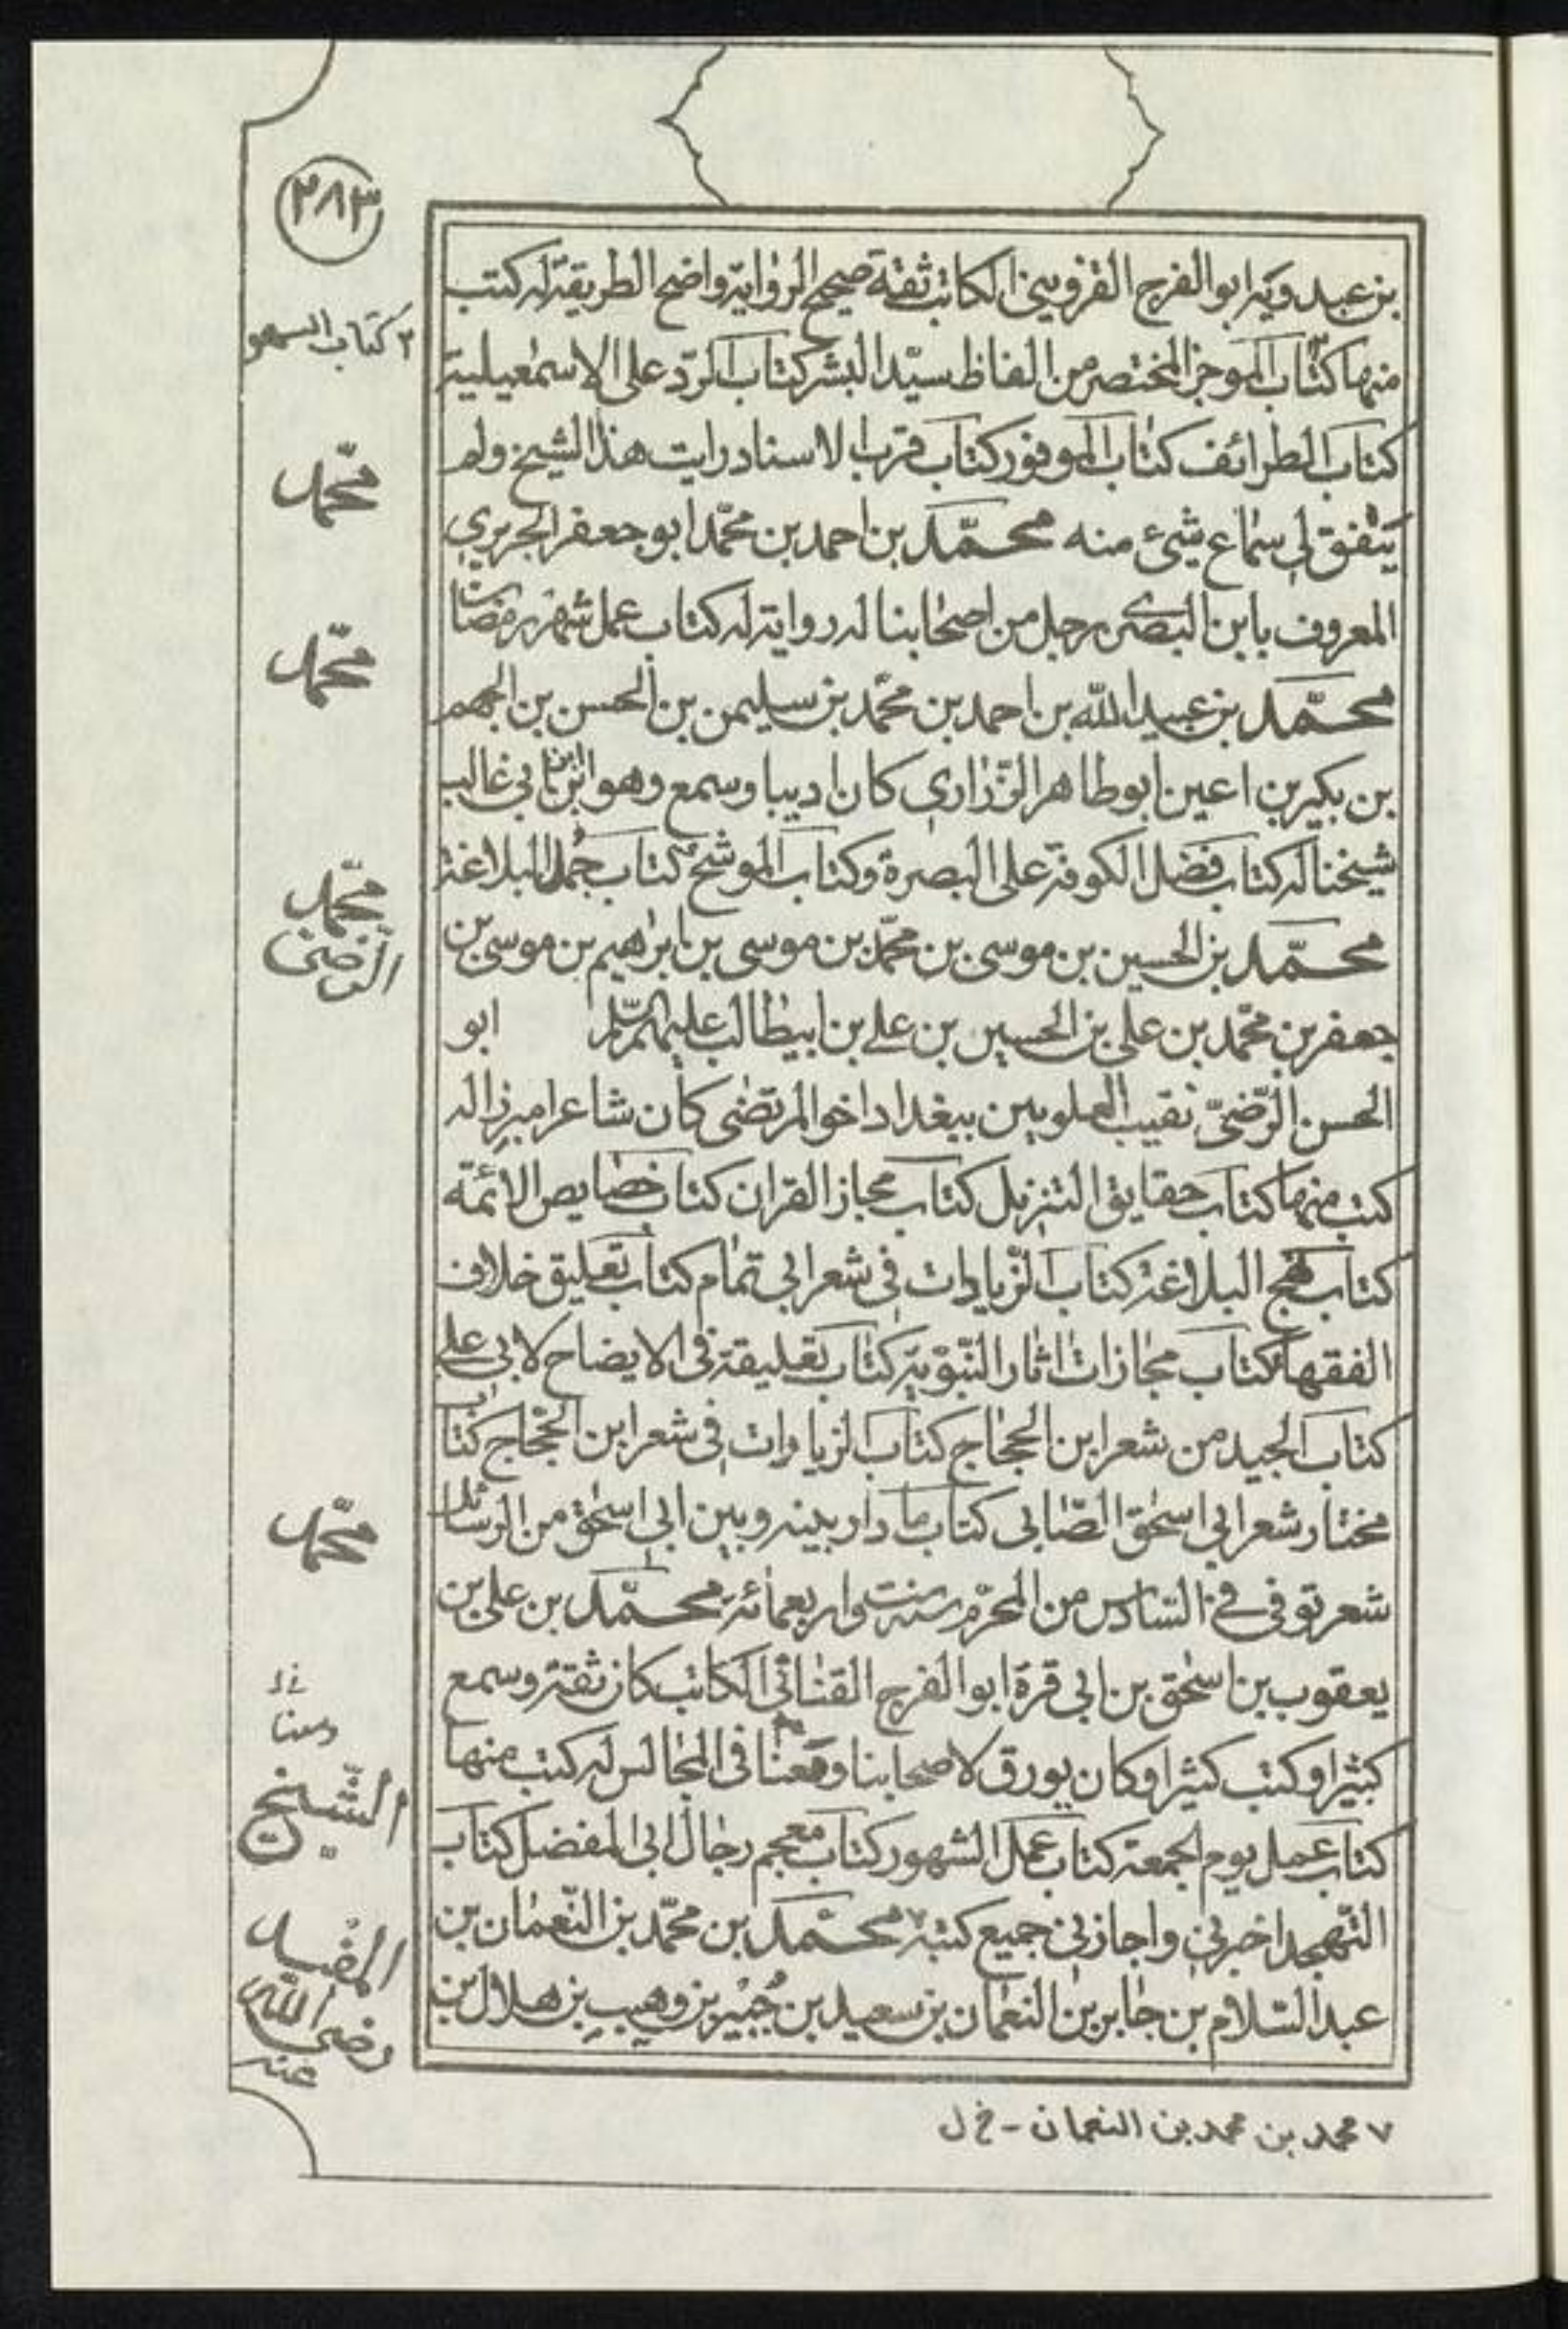 ٢٨٣
٢ كتاب السهو
بن عبدويه ابو الفرج القزويني الكاتب ثقة صحيح الرواية واضح الطريقة له كتب
منها كتاب الموجز المختصر من الفاظ سيّد البشر كتاب الردّ على الاسمعيلية
كتاب الطرائف كتاب الموفور كتاب قرب الاسناد رايت هذا الشيخ ولم
يتفق لي سماع شيئ منه محمّد بن احمد بن محمّد ابو جعفر الجريري
المعروف بابن البصرى رجل من اصحابنا له رواية له كتاب عمل شهر رمضان
محمّد بن عبيد الله بن احمد بن محمّد بن سليمن بن الحسن بن الجهم
بن بكير بن اعين ابو طاهر الزّراري كان اديبا وسمع وهو ابن ابن ابي غالب
شيخنا له كتاب فضل الكوفة على البصرة وكتاب الموشح كتاب جُمل البلاغة
محمّد بن الحسين بن موسى بن محمّد بن موسى بن ابراهيم بن موسى بن
جعفر بن محمّد بن علي بن الحسين بن علي بن ابيطالب عليهم السّلم ابو
الحسن الرّضيّ نقيب العلويين ببغداد اخو المرتضى كان شاعرا مبرزا له
كتب منها كتاب حقايق التنزيل كتاب مجاز القران كتاب خصايص الائمّة
كتاب نهج البلاغة كتاب الزّيادات في شعر ابي تمام كتاب تعليق خلاف
الفقهاء كتاب مجازات اثار النّبوّية كتاب تعليقة في الايضاح لابي علي
كتاب الجيد من شعر ابن الحجاج كتاب الزيادات في شعر ابن الحجّاج كتاب
مختار شعر ابي اسحق الصّابى كتاب ما دار بينه وبين ابي اسحق من الرسائل
شعر توفي في السّادس من المحرّم سنة ست واربعمائة محمّد بن علي بن
يعقوب بن اسحق بن ابي قرة ابو الفرج القنائي الكاتب كان ثقة وسمع
كثيرا وكتب كثيرا وكان يورق لاصحابنا ومعنا في المجالس له كتب منها
كتاب عمل يوم الجمعة كتاب عمل الشهور كتاب معجم رجال ابي المفضل كتاب
التّهجد اخبرني واجازني جميع كتبه ٧ محمّد بن محمّد بن النّعمان بن
عبد السّلام بن جابر بن النعمان بن سعيد بن جُبَيْر بن وهيب بن هلال بن
محمّد
محمّد
محمّد
الرّضىّ
محمّد
ومعنا
الشّيخ
المفيد
رضى الله
عنه
٧ محمد بن محمد بن النعمان - خ ل